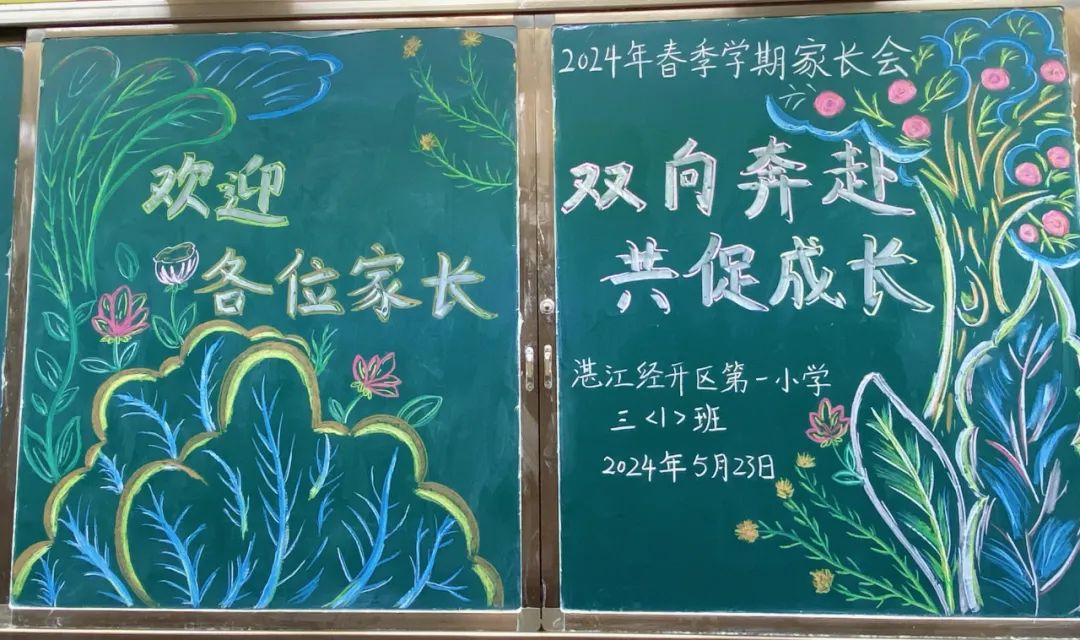 欢迎
各位家长
2024年春季学期家长会
双向奔赴
共促成长
湛江经开区第一小学
三<1>班
2024年5月23日